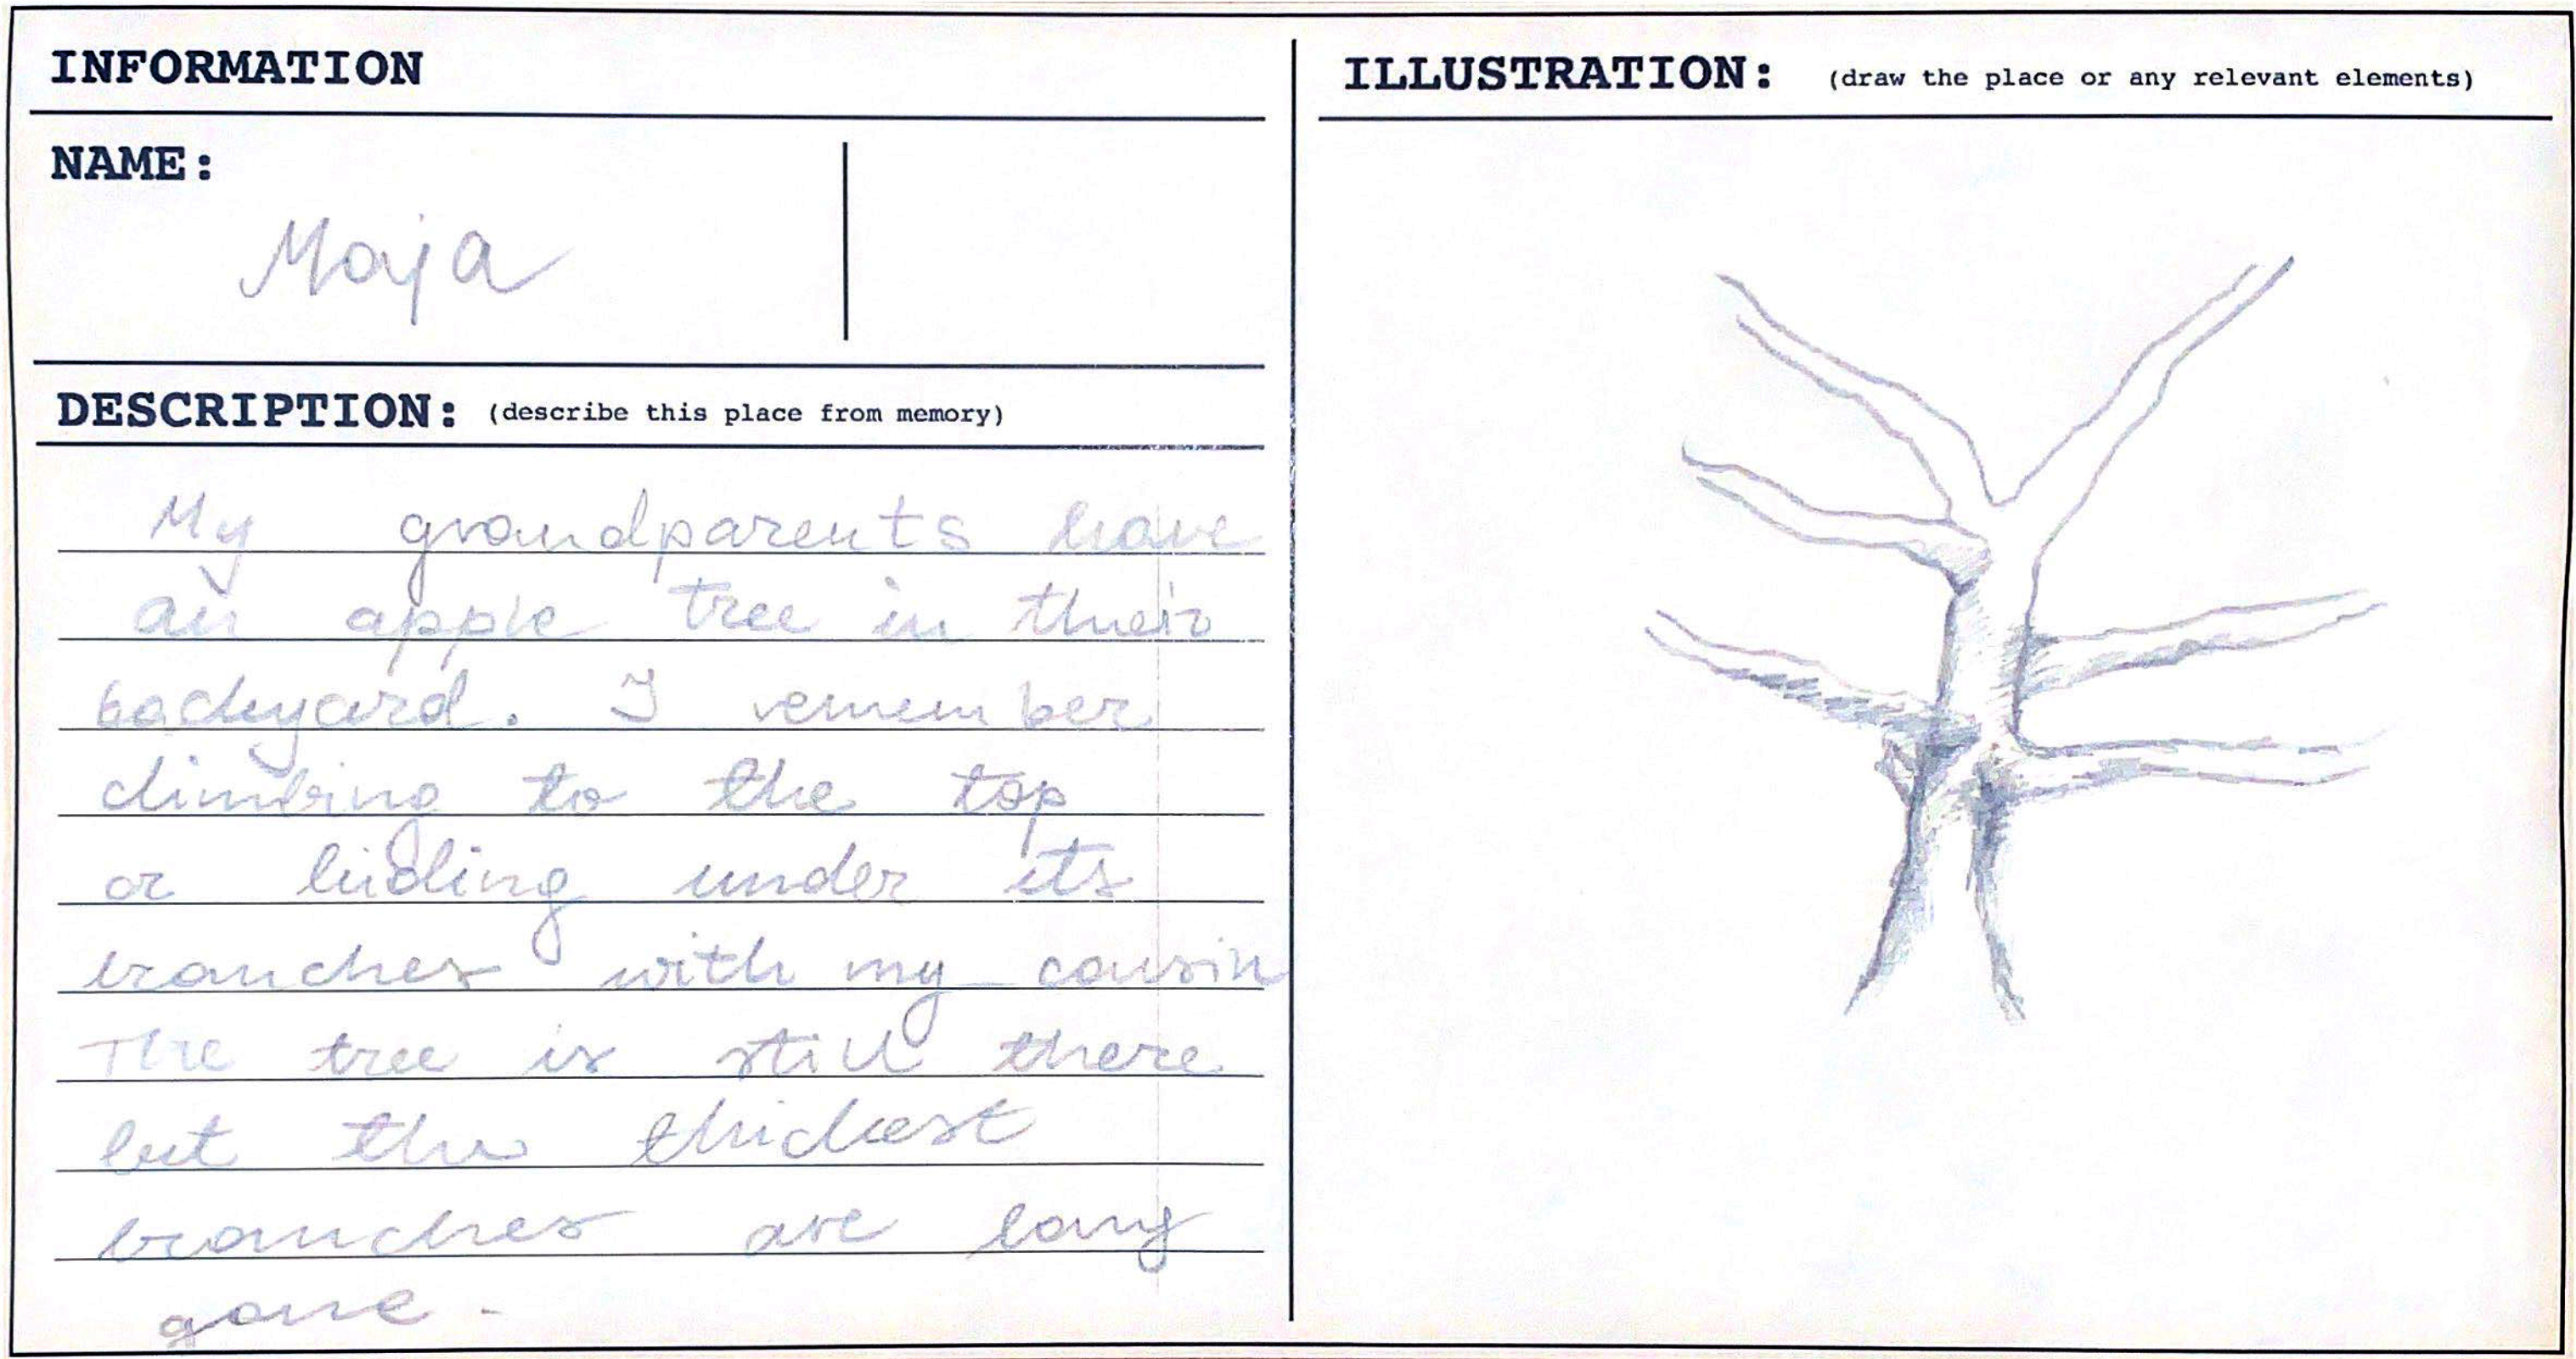 INFORMATION
NAME:
Maja
DESCRIPTION: (describe this place from memory)
My grandparents have
an apple tree in their
backyard. I remember
climbing to the top
or hiding under its
branches with my cousin
The tree is still there
but the thickest
branches are long
gone.
ILLUSTRATION: (draw the place or any relevant elements)